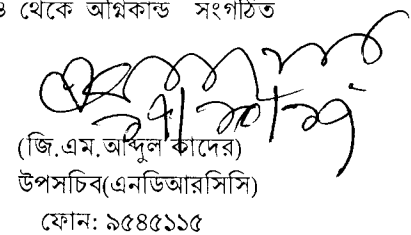 থেকে অগ্নিকান্ড সংগঠিত
(জি.এম.আব্দুল কাদের)
উপসচিব(এনডিআরসিসি)
ফোন: ৯৫৪৫১১৫